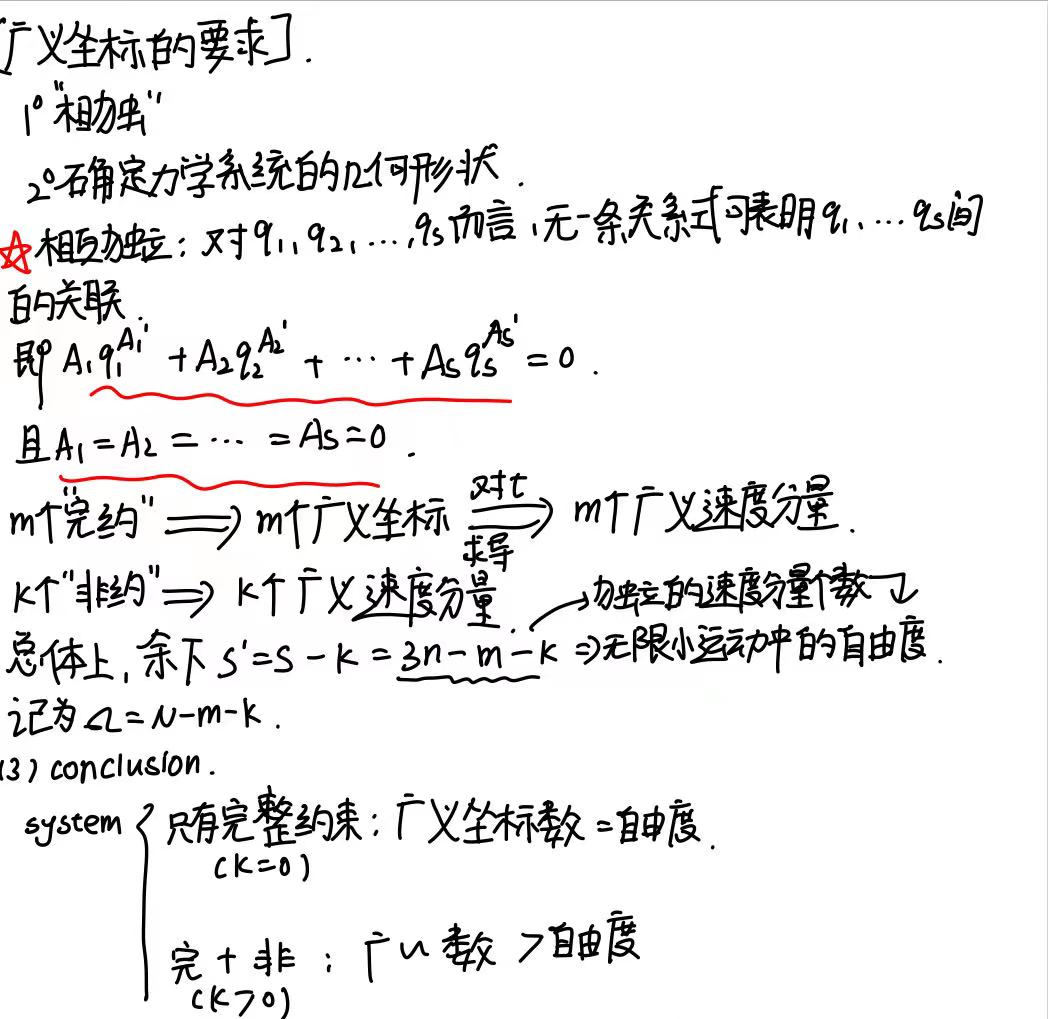 [广义坐标的要求].
1° "相独"
2° 确定力学系统的几何形状.
☆ 相互独立: 对 q₁, q₂, …, qs 而言, 无一条关系式可表明 q₁, … qs 间
的关联.
即 A₁q₁^A₁' + A₂q₂^A₂' + … + Asqs^As' = 0.
且 A₁ = A₂ = … = As = 0.
m个"完约" ⟹ m个广义坐标 对t 求导 ⟹ m个广义速度分量.
K个"非约" ⟹ K个广义速度分量. → 独立的速度分量个数
总体上, 余下 s' = s - k = 3n - m - k ⇒ 无限小运动中的自由度.
记为 Ω = N - m - k.
(3) conclusion.
system { 只有完整约束: 广义坐标数 = 自由度.
(K=0)
完 + 非 : 广~数 > 自由度
(K>0)